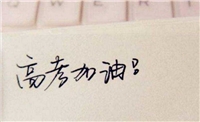 W E R
高考加油!